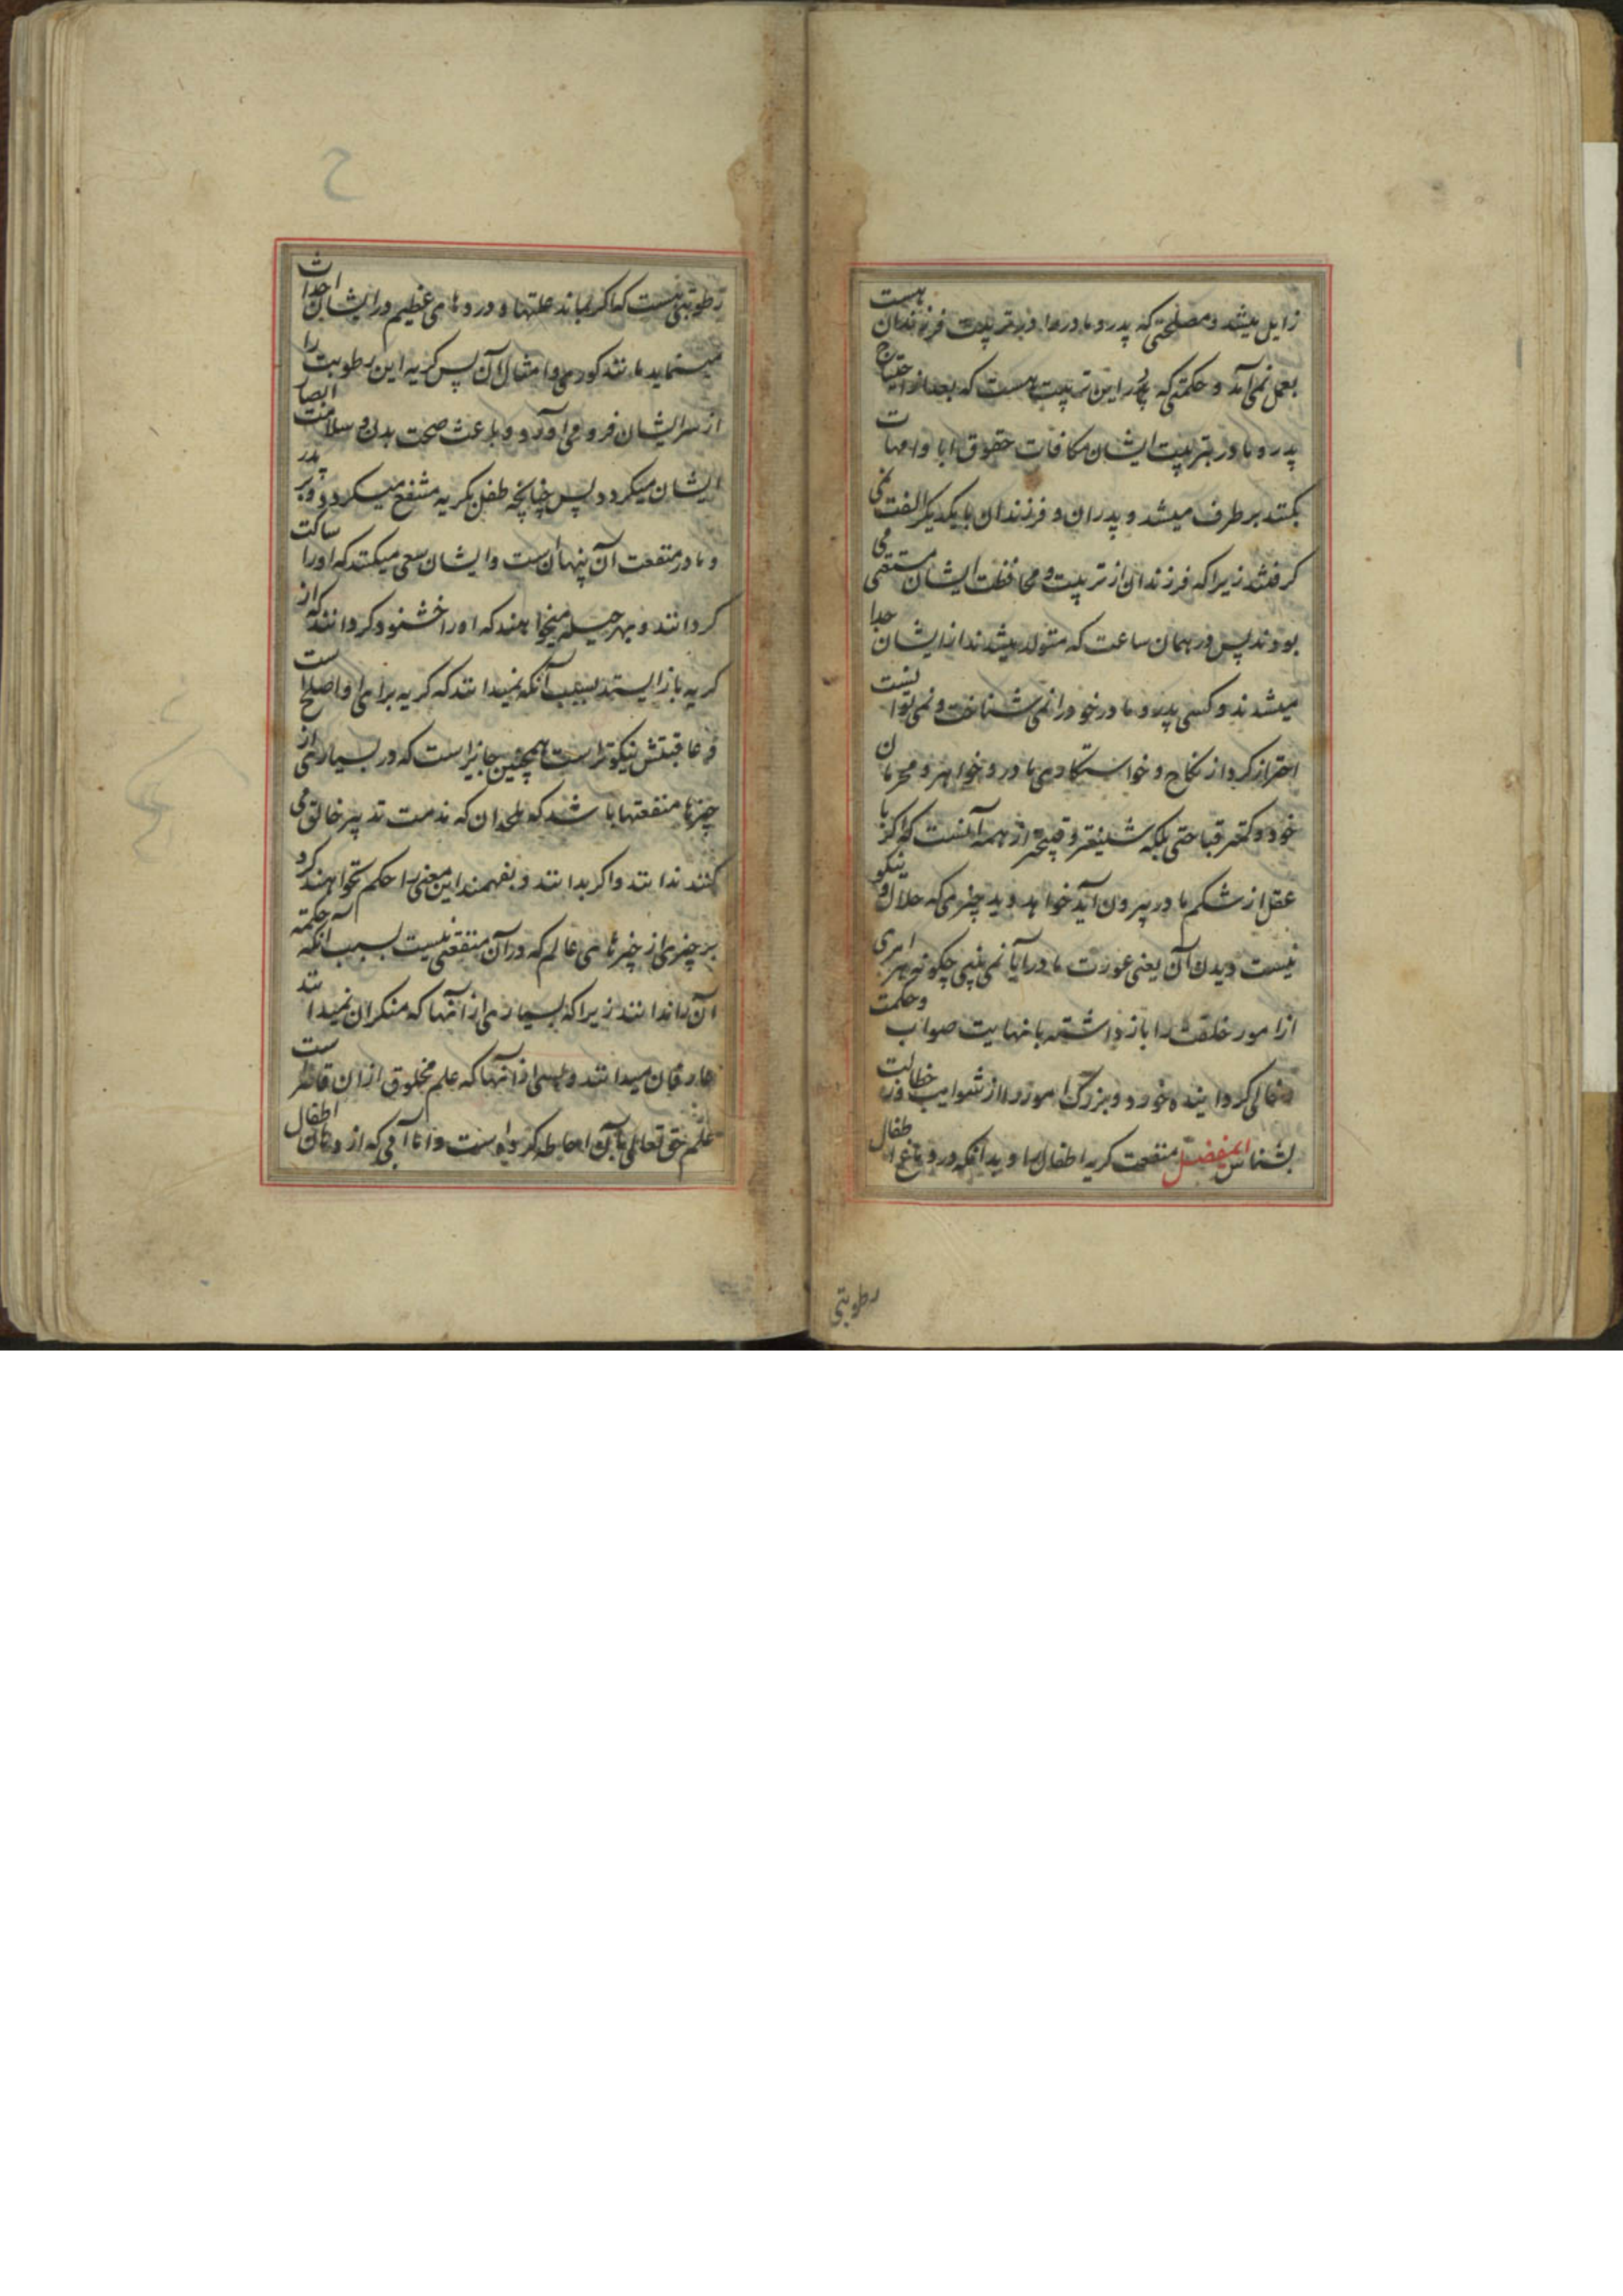 زایل میشد و مصلحتی که پدر و مادر را در تربیت فرزندان هست
بعمل نمی آمد و حکمتی که در این تربیت هست که بعد از احتیاج
پدر و مادر بتربیت ایشان مکافات حقوق ابا و امهات
بکنند بر طرف میشد و پدران و فرزندان با یکدیگر الفت نمی
گرفتند زیرا که فرزندان از تربیت و محافظت ایشان مستغنی می
بودند پس در همان ساعت که متولد میشدند از ایشان جدا
میشدند و کسی پدر و مادر خود را نمی شناخت و نمی توانست
احتراز کرد از نکاح و خواستکاری مادر و خواهر و محرمان
خود و کمتر قباحتی بلکه شنیعتر و قبیحتر از همه آنست که اگر با
عقل از شکم مادر بیرون آید خواهد دید چیزی که حلال و نیکو
نیست دیدن آن یعنی عورت مادر آیا نمی بینی چکونه هر امری
از امور خلقت را باز داشته با نهایت صواب و حکمت
و خالی کردانیده خورد و بزرک امور را از شوایب خطا و زلت
بشناس ای مفضل منفعت کریه اطفال را و بدانکه در دماغ اطفال
رطوبتی
رطوبتی هست که اکر بماند علتها و دردهای عظیم در ایشان احداث
مینماید مانند کوری و امثال آن پس کریه این رطوبت را
از سر ایشان فرو می آورد و باعث صحت بدن و سلامت ابصار
ایشان میکردد پس چنانچه طفل بکریه منتفع میکردد و بر پدر
و مادر منفعت آن پنهان ست و ایشان سعی میکنند که او را ساکت
کردانند و بهر حیله میخواهند که او را خشنود کردانند که از
کریه باز ایستد بسبب آنکه نمیدانند که کریه برای او اصلح است
و عاقبتش نیکوتر است همچنین جایز است که در بسیاری از
چیزها منفعتها باشد که ملحدان که مذمت تدبیر خالق می
کنند ندانند و اکر بدانند و بفهمند این معنی را حکم نخواهند کرد
بر چیزی از چیزهای عالم که در آن منفعتی نیست بسبب آنکه حکمت
آن را ندانند زیرا که بسیاری از آنها که منکران نمیدانند
عارفان میدانند و بسی از آنها که علم مخلوق از آن قاصر است
علم حق تعالی بآن احاطه کرده است و اما آبی که از دهان اطفال